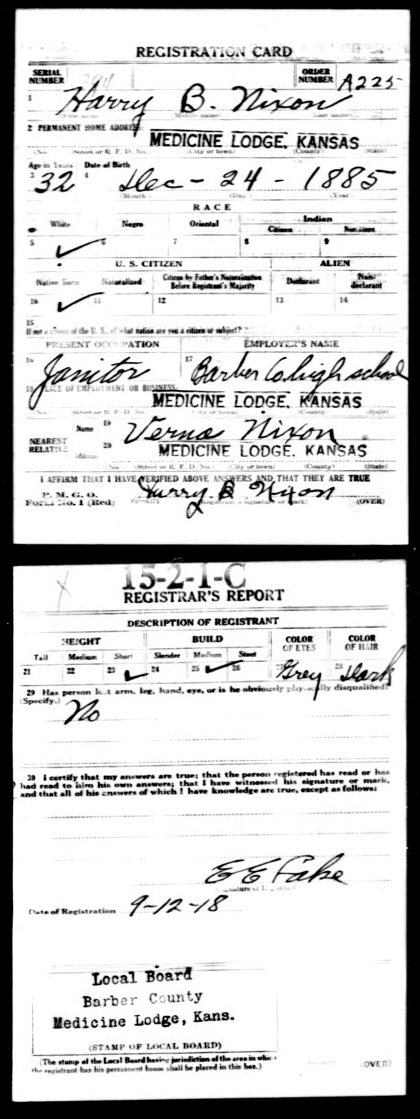 REGISTRATION CARD
SERIAL NUMBER
ORDER NUMBER A225
1 Harry B. Nixon
2 PERMANENT HOME ADDRESS:
MEDICINE LODGE, KANSAS
(No.) (Street or R. F. D. No.) (City or town) (County) (State)
Age in Years Date of Birth
3 32 4 Dec - 24 - 1885
(Month) (Day) (Year)
RACE
White Negro Oriental Indian
Citizen Noncitizen
5 ✓ 6 7 8 9
U. S. CITIZEN ALIEN
Native Born Naturalized Citizen by Father's Naturalization Before Registrant's Majority Declarant Non-declarant
10 ✓ 11 12 13 14
15
If not a citizen of the U. S., of what nation are you a citizen or subject?
PRESENT OCCUPATION EMPLOYER'S NAME
16 Janitor 17 Barber Co high school
18 PLACE OF EMPLOYMENT OR BUSINESS:
MEDICINE LODGE, KANSAS
(No.) (Street or R. F. D. No.) (City or town) (County) (State)
NEAREST RELATIVE
Name 19 Verna Nixon
Address 20 MEDICINE LODGE, KANSAS
(No.) (Street or R. F. D. No.) (City or town) (County) (State)
I AFFIRM THAT I HAVE VERIFIED ABOVE ANSWERS AND THAT THEY ARE TRUE
P. M. G. O.
Form No. 1 (Red) Harry B Nixon (OVER)
15-2-1-C
REGISTRAR'S REPORT
DESCRIPTION OF REGISTRANT
HEIGHT BUILD COLOR OF EYES COLOR OF HAIR
Tall Medium Short Slender Medium Stout
21 22 23 ✓ 24 25 ✓ 26 27 Grey 28 Dark
29 Has person lost arm, leg, hand, eye, or is he obviously physically disqualified?
(Specify.) No
30 I certify that my answers are true; that the person registered has read or has
had read to him his own answers; that I have witnessed his signature or mark,
and that all of his answers of which I have knowledge are true, except as follows:
E E Fake
Date of Registration 9-12-18
Local Board
Barber County
Medicine Lodge, Kans.
(STAMP OF LOCAL BOARD)
(The stamp of the Local Board having jurisdiction of the area in which
the registrant has his permanent home shall be placed in this box.)
(OVER)